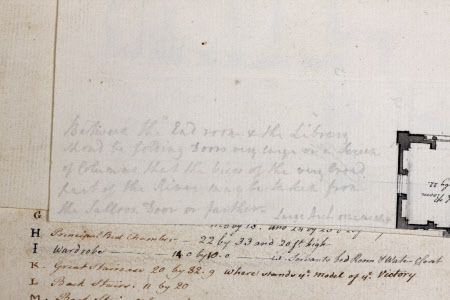 Between the End room & the Library
must be folding Doors very large or a Screen
of Columns that the view of the very broad
part of the River may be taken from
the Salloon Door or farther.
Large Arch
G
H Principal Bed Chamber — 22 by 33 and 20 ft high
I Wardrobe — 14.0 by 10.0 Servants bed Room & Water Closet
K. Great Staircase 20 by 32.9 where stands ye. model of ye. Victory
L Back Stairs. 11 by 20
M. Back Stairs
Room
by 22